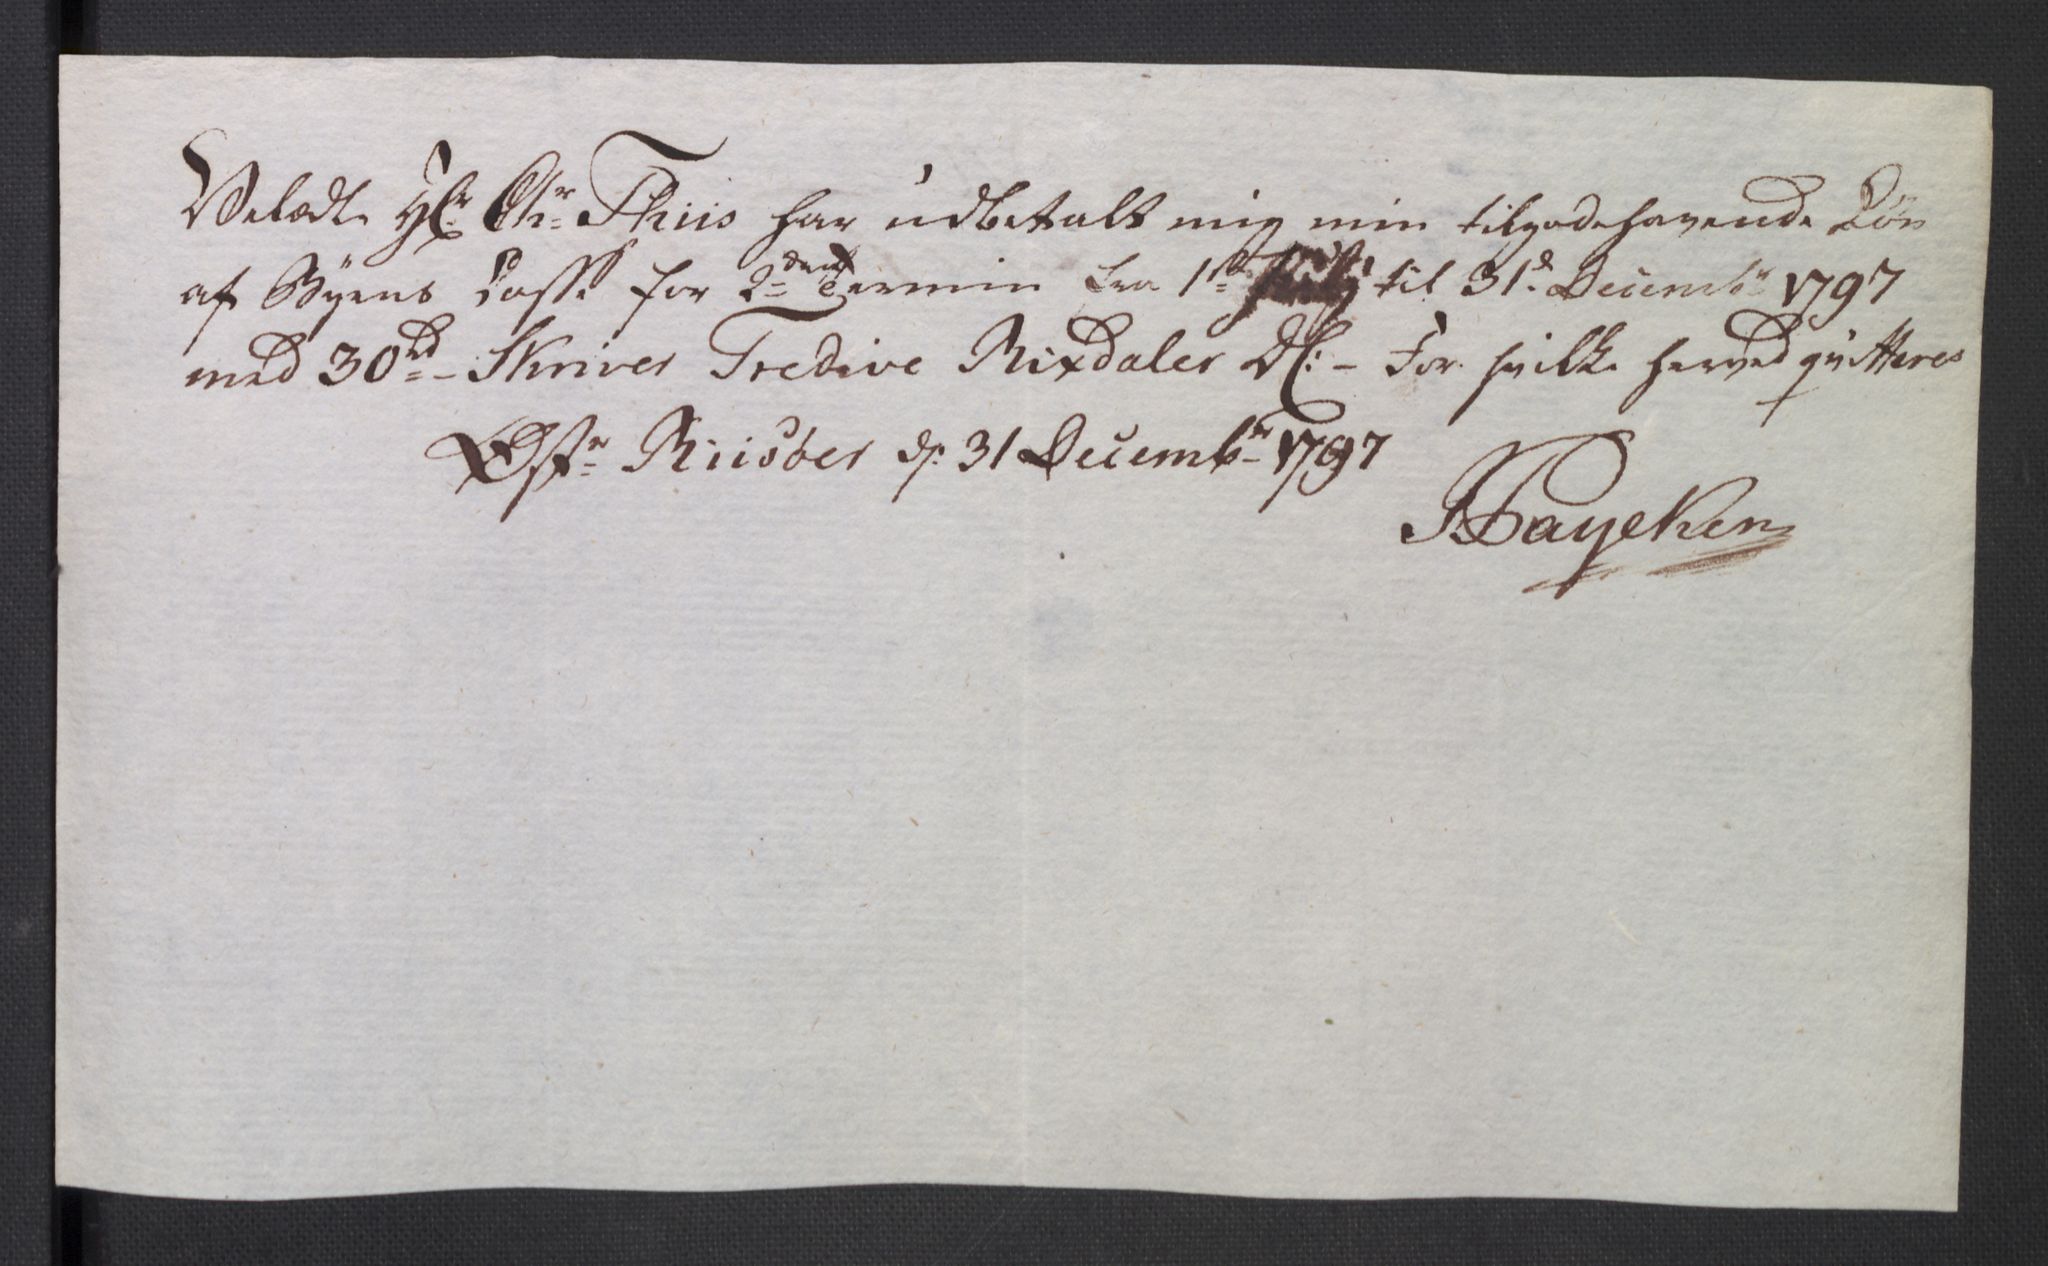 Velædle Hr: Chr: Thiis har udbetalt mig min tilgodehavende Løn
af Byens Casse for 2den Termin fra 1te July til 31d: Decembr 1797
med 30rd – Skriver Tredive Rixdaler Dl: – For hvilke herved qvitteres
Østr: Riisöer d: 31 Decembr 1797
Bayeken